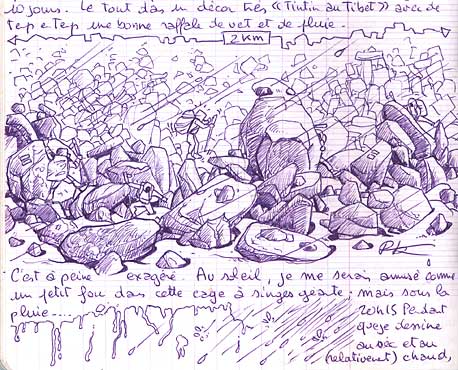 10 jours. Le tout dās u décor très «Tintin au Tibet» avec de
tēp ē tēp une bonne raffale de vēt et de pluie.
2 KM
C'est à peine exagéré. Au soleil, je me serais amusé comme
un petit fou dans cette cage à singes géāte; mais sous la
pluie....
20h15 Pēdāt
que je dessine
au sec et au
(relativemēt) chaud,